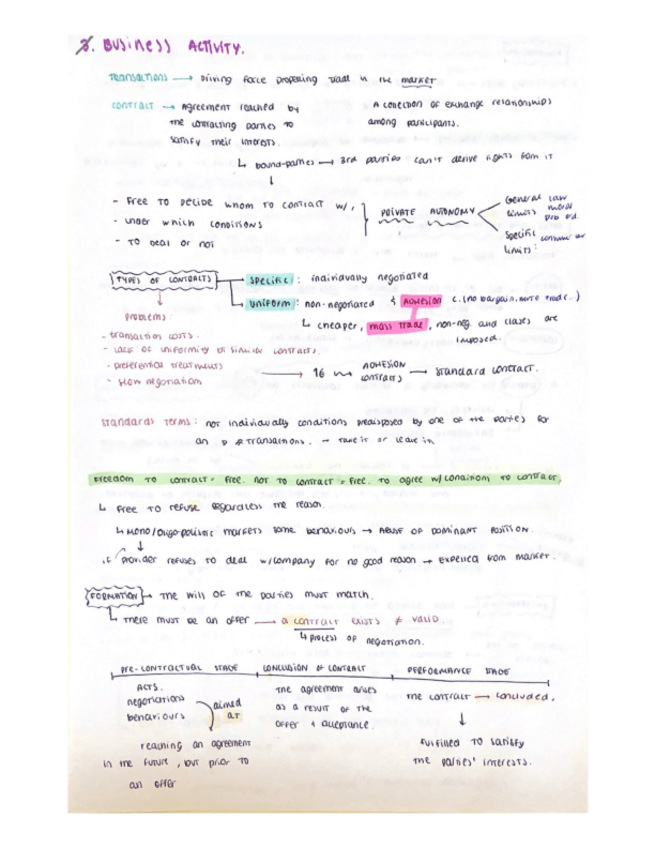 3. BUSINESS ACTIVITY.
TRANSACTIONS → Driving force propelling trade in the market
CONTRACT → Agreement reached by the contracting parties to satisfy their interests.
A collection of exchange relationships among participants.
↳ bound-parties → 3rd parties can't derive rights from it
↓
- Free to decide whom to contract w/,
- under which conditions
- to deal or not
PRIVATE AUTONOMY
General limits law moral
Specific limits:
TYPES OF CONTRACTS
Specific: individually negotiated
Uniform: non-negotiated & ADHESION c. (no bargain,
↳ cheaper, mass trade, non-neg. and clases are imposed.
Problems:
- transaction costs.
- lack of uniformity of similar contracts.
- preferential treatments
- slow negotiation
→ 16 → ADHESION contracts → standard contract.
Standards Terms: not individually conditions predisposed by one of the parties for
an # transactions. → take it or leave in
Freedom to contract = free. not to contract = free. to agree w/conditions to contract.
↳ Free to refuse regardless the reason.
↳ Mono/oligo-polistic markets some behaviours → ABUSE OF DOMINANT POSITION.
if provider refuses to deal w/company for no good reason → expelled from market.
FORMATION → The will of the parties must match.
↳ There must be an offer → a contract exists ≠ VALID.
↳ process of negotiation.
PRE-CONTRACTUAL STAGE
CONCLUSION OF CONTRACT
PERFORMANCE STAGE
ACTS.
negotiations
behaviours
aimed at
reaching an agreement
in the future, but prior to
an offer
The agreement arises
as a result of the
offer & acceptance.
The contract → concluded.
↓
Fulfilled to satisfy
the parties' interests.